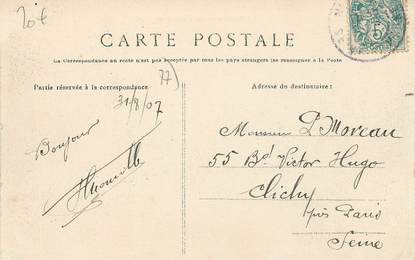 20€
CARTE POSTALE
La Correspondance au recto n'est pas acceptée par tous les pays étrangers (se renseigner à la Poste)
77
Partie réservée à la correspondance
31/8/07
Bonjour
Adresse du destinataire:
Monsieur P. Moreau
55 Bd Victor Hugo
Clichy
près Paris
Seine
5